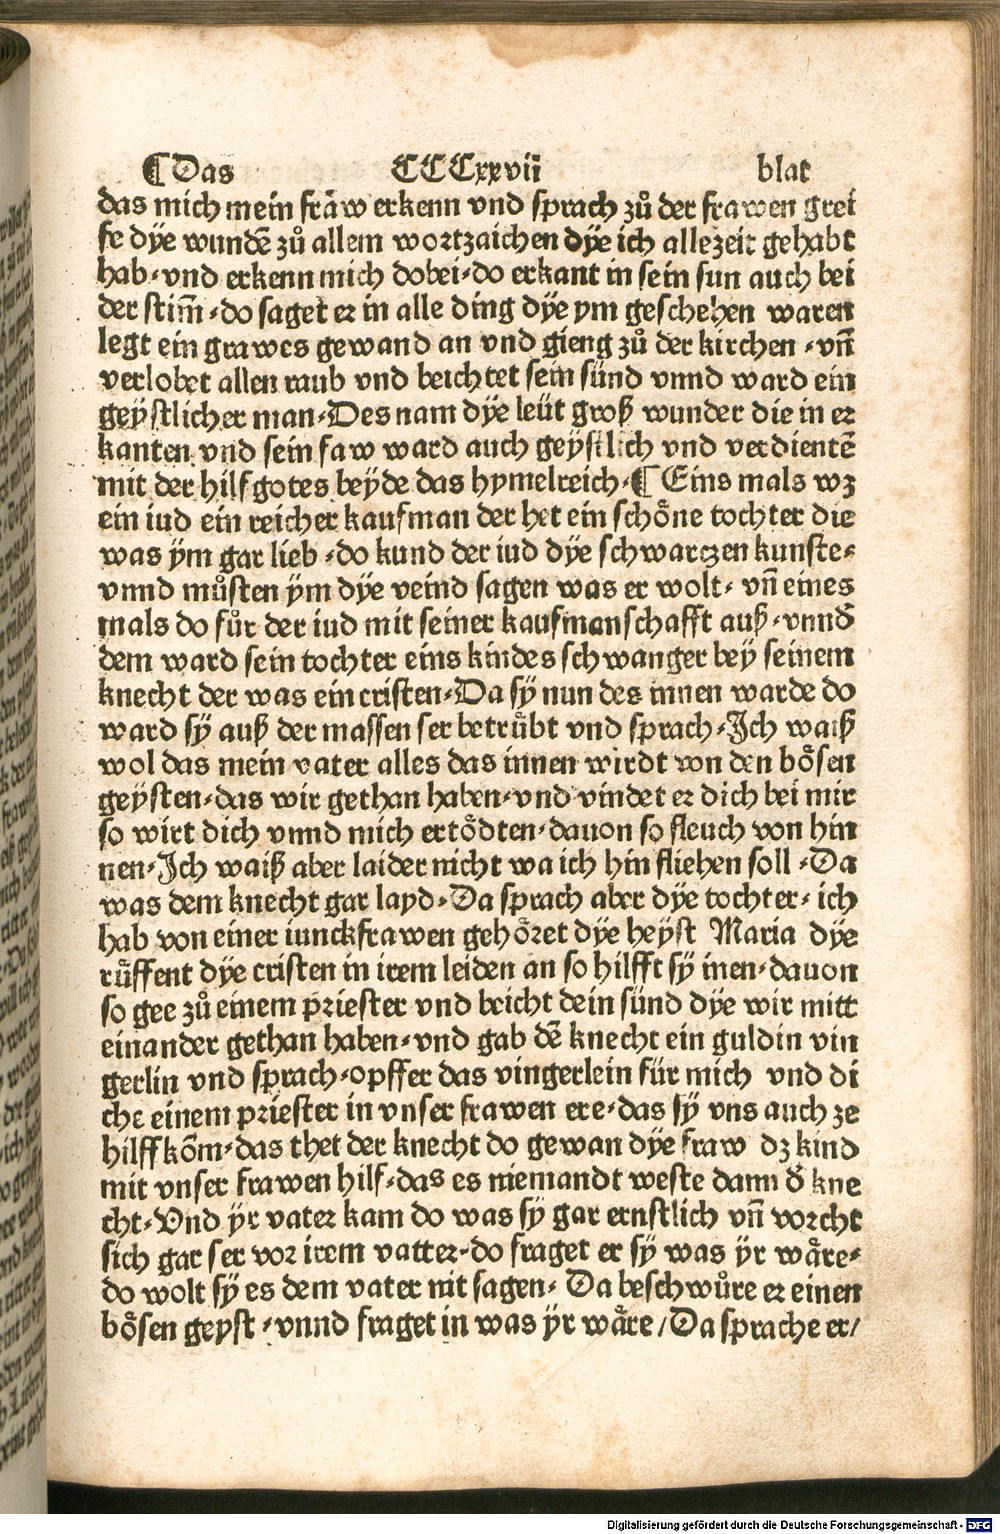 ¶Das CCCxxvii blat
das mich mein fraͤw erkenn vnd sprach zuͦ der frawen grei
fe dÿe wundē zuͦ allem wortzaichen dÿe ich allezeit gehabt
hab·vnd erkenn mich dobei·do erkant in sein sun auch bei
der stim̄·do saget er in alle ding dÿe ym geschehen waren
legt ein grawes gewand an vnd gieng zuͦ der kirchen·vn̄
verlobet allen raub vnd beichtet sein sünd vnnd ward ein
geÿstlicher man·Des nam dÿe leüt groß wunder die in er
kanten vnd sein faw ward auch geÿstlich vnd verdientē
mit der hilf gotes beÿde das hymelreich·¶ Eins mals wz
ein iud ein reicher kaufman der het ein schoͤne tochter die
was ÿm gar lieb·do kund der iud dÿe schwarczen kunste·
vnnd muͦsten ÿm dÿe veind sagen was er wolt·vn̄ eines
mals do fuͦr der iud mit seiner kaufmanschafft auß·vnnd
dem ward sein tochter eins kindes schwanger beÿ seinem
knecht der was ein cristen·Da sÿ nun des innen warde do
ward sÿ auß der massen ser betruͤbt vnd sprach·Jch waiß
wol das mein vater alles das innen wirdt von den boͤsen
geÿsten·das wir gethan haben·vnd vindet er dich bei mir
so wirt dich vnnd mich ertoͤdten·dauon so fleuch von hin
nen·Jch waiß aber laider nicht wa ich hin fliehen soll·Da
was dem knecht gar layd·Da sprach aber dÿe tochter·ich
hab von einer iunckfrawen gehoͤret dÿe heÿst Maria dÿe
ruͤffent dÿe cristen in irem leiden an so hilfft sÿ inen·dauon
so gee zuͦ einem priester vnd beicht dein sünd dÿe wir mitt
einander gethan haben·vnd gab dē knecht ein guldin vin
gerlin vnd sprach·opffer das vingerlein für mich vnd di
che einem priester in vnser frawen ere·das sÿ vns auch ze
hilff kom̄·das thet der knecht do gewan dÿe fraw dz kind
mit vnser frawen hilf·das es niemandt weste dann d̄ kne
cht·Vnd ÿr vater kam do was sÿ gar ernstlich vn̄ vorcht
sich gar ser vor irem vatter·do fraget er sÿ was ÿr waͤre·
do wolt sÿ es dem vater nit sagen·Da beschwuͦre er einen
boͤsen geyst·vnnd fraget in was ÿr waͤre/Da sprache er/
Digitalisierung gefördert durch die Deutsche Forschungsgemeinschaft - DFG